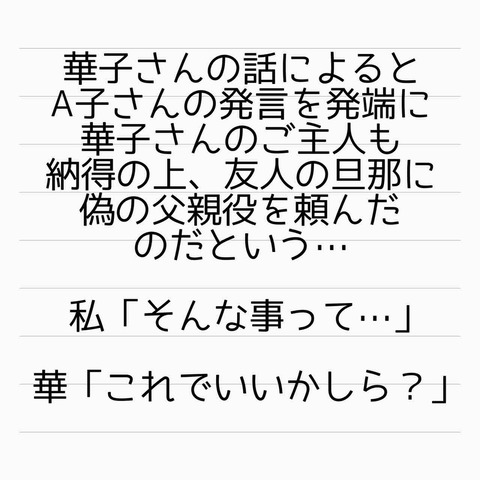 華子さんの話によると
A子さんの発言を発端に
華子さんのご主人も
納得の上、友人の旦那に
偽の父親役を頼んだ
のだという…
私「そんな事って…」
華「これでいいかしら？」